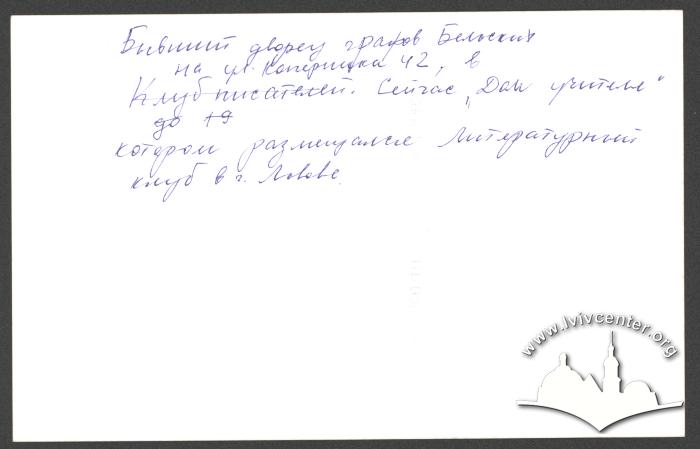 Бывший дворец графов Бельских
на ул. Коперника 42, в
Клуб писателей. Сейчас „Дом учителя"
до 19
котором размещался Литературный
клуб в г. Львове.
www.lvivcenter.org